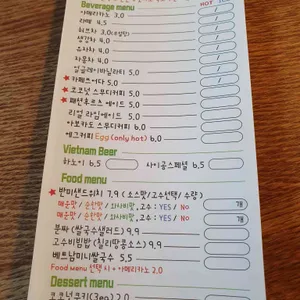 HOT
Beverage menu
아메리카노 3.0
라떼 4.5
허브차 3.0
생강차 4.0
유자차 4.0
자몽차 4.0
얼그레이바닐라티 5.0
★ 카페쓰어다 5.0
★ 코코넛 스무디커피 6.0
★ 패션후르츠 에이드 5.0
리얼 라임에이드 5.0
아보카도 스무디커피 6.0
에그커피 Egg (only hot) 6.0
Vietnam Beer
하노이 6.5 사이공스페셜 6.5
Food menu
★ 반미샌드위치 7.9 (소스맛/고수선택/수량)
매운맛 / 순한맛 / 와사비맛, 고수 : YES / NO 개
매운맛 / 순한맛 / 와사비맛, 고수 : YES / NO 개
분짜 (쌀국수샐러드) 9.9
고수비빔밥 (칠리땅콩소스) 9.9
베트남미니쌀국수 5.5
Food menu 선택시 + 아메리카노 2.0
Dessert menu
코코넛쿠키(3ea) 2.0